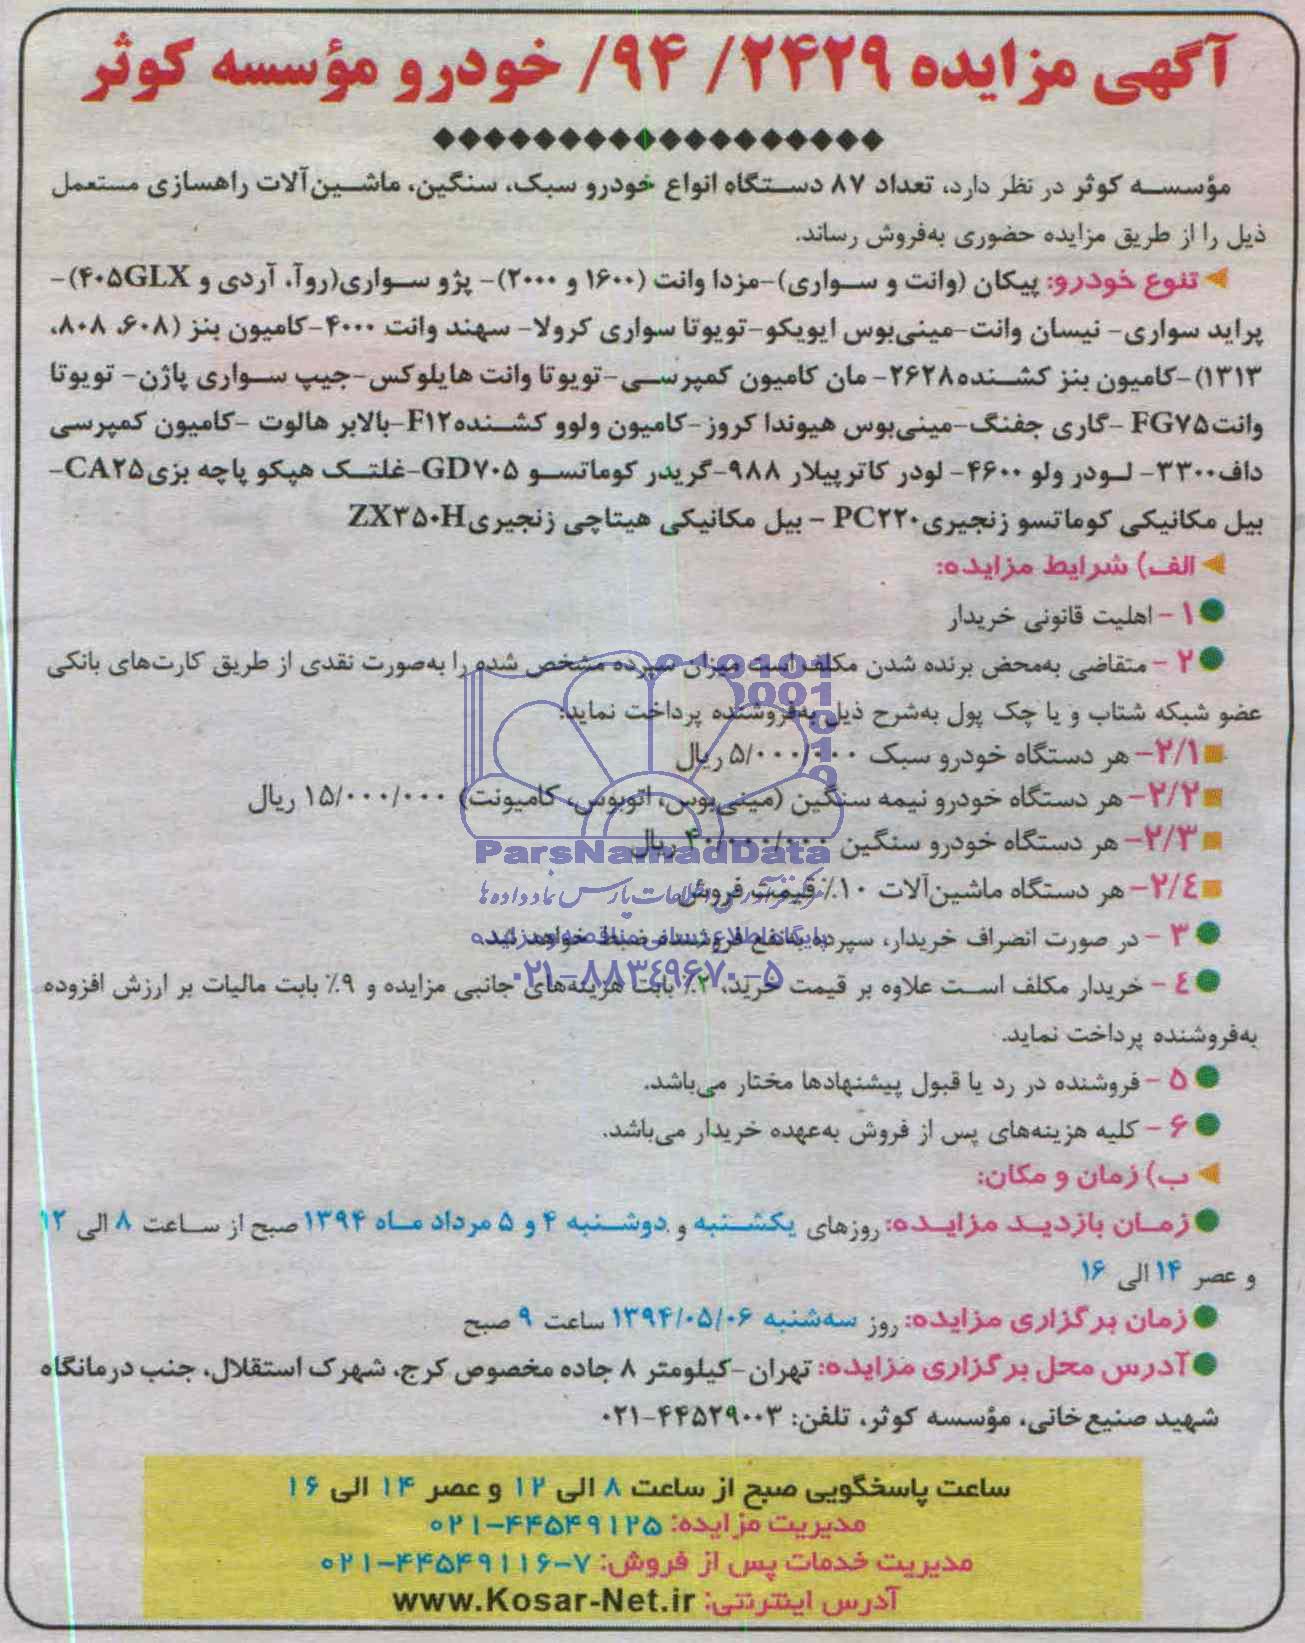 آگهی مزایده ۲۴۲۹/ ۹۴/ خودرو مؤسسه کوثر
مؤسسه کوثر در نظر دارد، تعداد ۸۷ دستگاه انواع خودرو سبک، سنگین، ماشین‌آلات راهسازی مستعمل
ذیل را از طریق مزایده حضوری به‌فروش رساند.
تنوع خودرو: پیکان (وانت و سواری)-مزدا وانت (۱۶۰۰ و ۲۰۰۰)- پژو سواری(روآ، آردی و ۴۰۵GLX)-
پراید سواری- نیسان وانت-مینی‌بوس ایویکو-تویوتا سواری کرولا- سهند وانت ۴۰۰۰-کامیون بنز (۶۰۸، ۸۰۸،
۱۳۱۳)-کامیون بنز کشنده۲۶۲۸- مان کامیون کمپرسی-تویوتا وانت هایلوکس-جیپ سواری پاژن- تویوتا
وانت FG۷۵ -گاری جفنگ-مینی‌بوس هیوندا کروز-کامیون ولوو کشنده F۱۲-بالابر هالوت -کامیون کمپرسی
داف۳۳۰۰- لودر ولو ۴۶۰۰- لودر کاترپیلار ۹۸۸-گریدر کوماتسو GD۷۰۵-غلتک هپکو پاچه بزی CA۲۵-
بیل مکانیکی کوماتسو زنجیری PC۲۲۰ - بیل مکانیکی هیتاچی زنجیری ZX۳۵۰H
الف) شرایط مزایده:
۱ - اهلیت قانونی خریدار
۲ - متقاضی به‌محض برنده شدن مکلف است میزان سپرده مشخص شده را به‌صورت نقدی از طریق کارت‌های بانکی
عضو شبکه شتاب و یا چک پول به‌شرح ذیل به‌فروشنده پرداخت نماید:
۲/۱- هر دستگاه خودرو سبک ۵/۰۰۰/۰۰۰ ریال
۲/۲- هر دستگاه خودرو نیمه سنگین (مینی‌بوس، اتوبوس، کامیونت) ۱۵/۰۰۰/۰۰۰ ریال
۲/۳- هر دستگاه خودرو سنگین ۴۰/۰۰۰/۰۰۰ ریال
ParsNamadData
۲/٤- هر دستگاه ماشین‌آلات ۱۰٪ قیمت فروش
مرکز فرآوری اطلاعات پارس نماد داده‌ها
۳ - در صورت انصراف خریدار، سپرده به‌نفع فروشنده ضبط خواهد شد.
پایگاه اطلاع رسانی مناقصه و مزایده
۰۲۱-۸۸۳٤۹۶۷۰-۵
٤ - خریدار مکلف است علاوه بر قیمت خرید، ۲٪ بابت هزینه‌های جانبی مزایده و ۹٪ بابت مالیات بر ارزش افزوده
به‌فروشنده پرداخت نماید.
۵ - فروشنده در رد یا قبول پیشنهادها مختار می‌باشد.
۶ - کلیه هزینه‌های پس از فروش به‌عهده خریدار می‌باشد.
ب) زمان و مکان:
زمان بازدید مزایده: روزهای یکشنبه و دوشنبه ۴ و ۵ مرداد ماه ۱۳۹۴ صبح از ساعت ۸ الی ۱۲
و عصر ۱۴ الی ۱۶
زمان برگزاری مزایده: روز سه‌شنبه ۱۳۹۴/۰۵/۰۶ ساعت ۹ صبح
آدرس محل برگزاری مزایده: تهران-کیلومتر ۸ جاده مخصوص کرج، شهرک استقلال، جنب درمانگاه
شهید صنیع‌خانی، مؤسسه کوثر، تلفن: ۰۲۱-۴۴۵۲۹۰۰۳
ساعت پاسخگویی صبح از ساعت ۸ الی ۱۲ و عصر ۱۴ الی ۱۶
مدیریت مزایده: ۰۲۱-۴۴۵۴۹۱۲۵
مدیریت خدمات پس از فروش: ۰۲۱-۴۴۵۴۹۱۱۶-۷
آدرس اینترنتی: www.Kosar-Net.ir